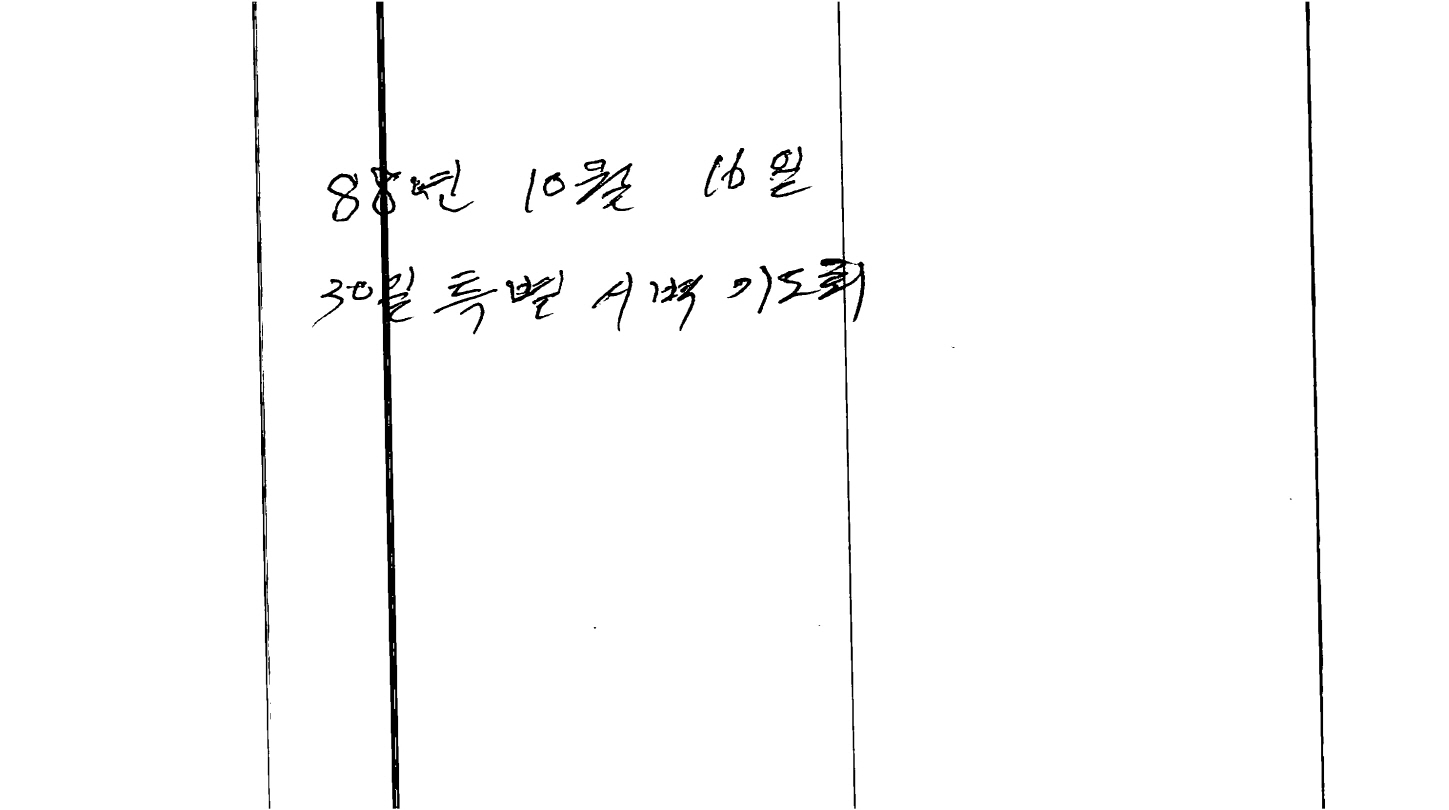 88년 10월 16일
30일 특별 새벽 기도회